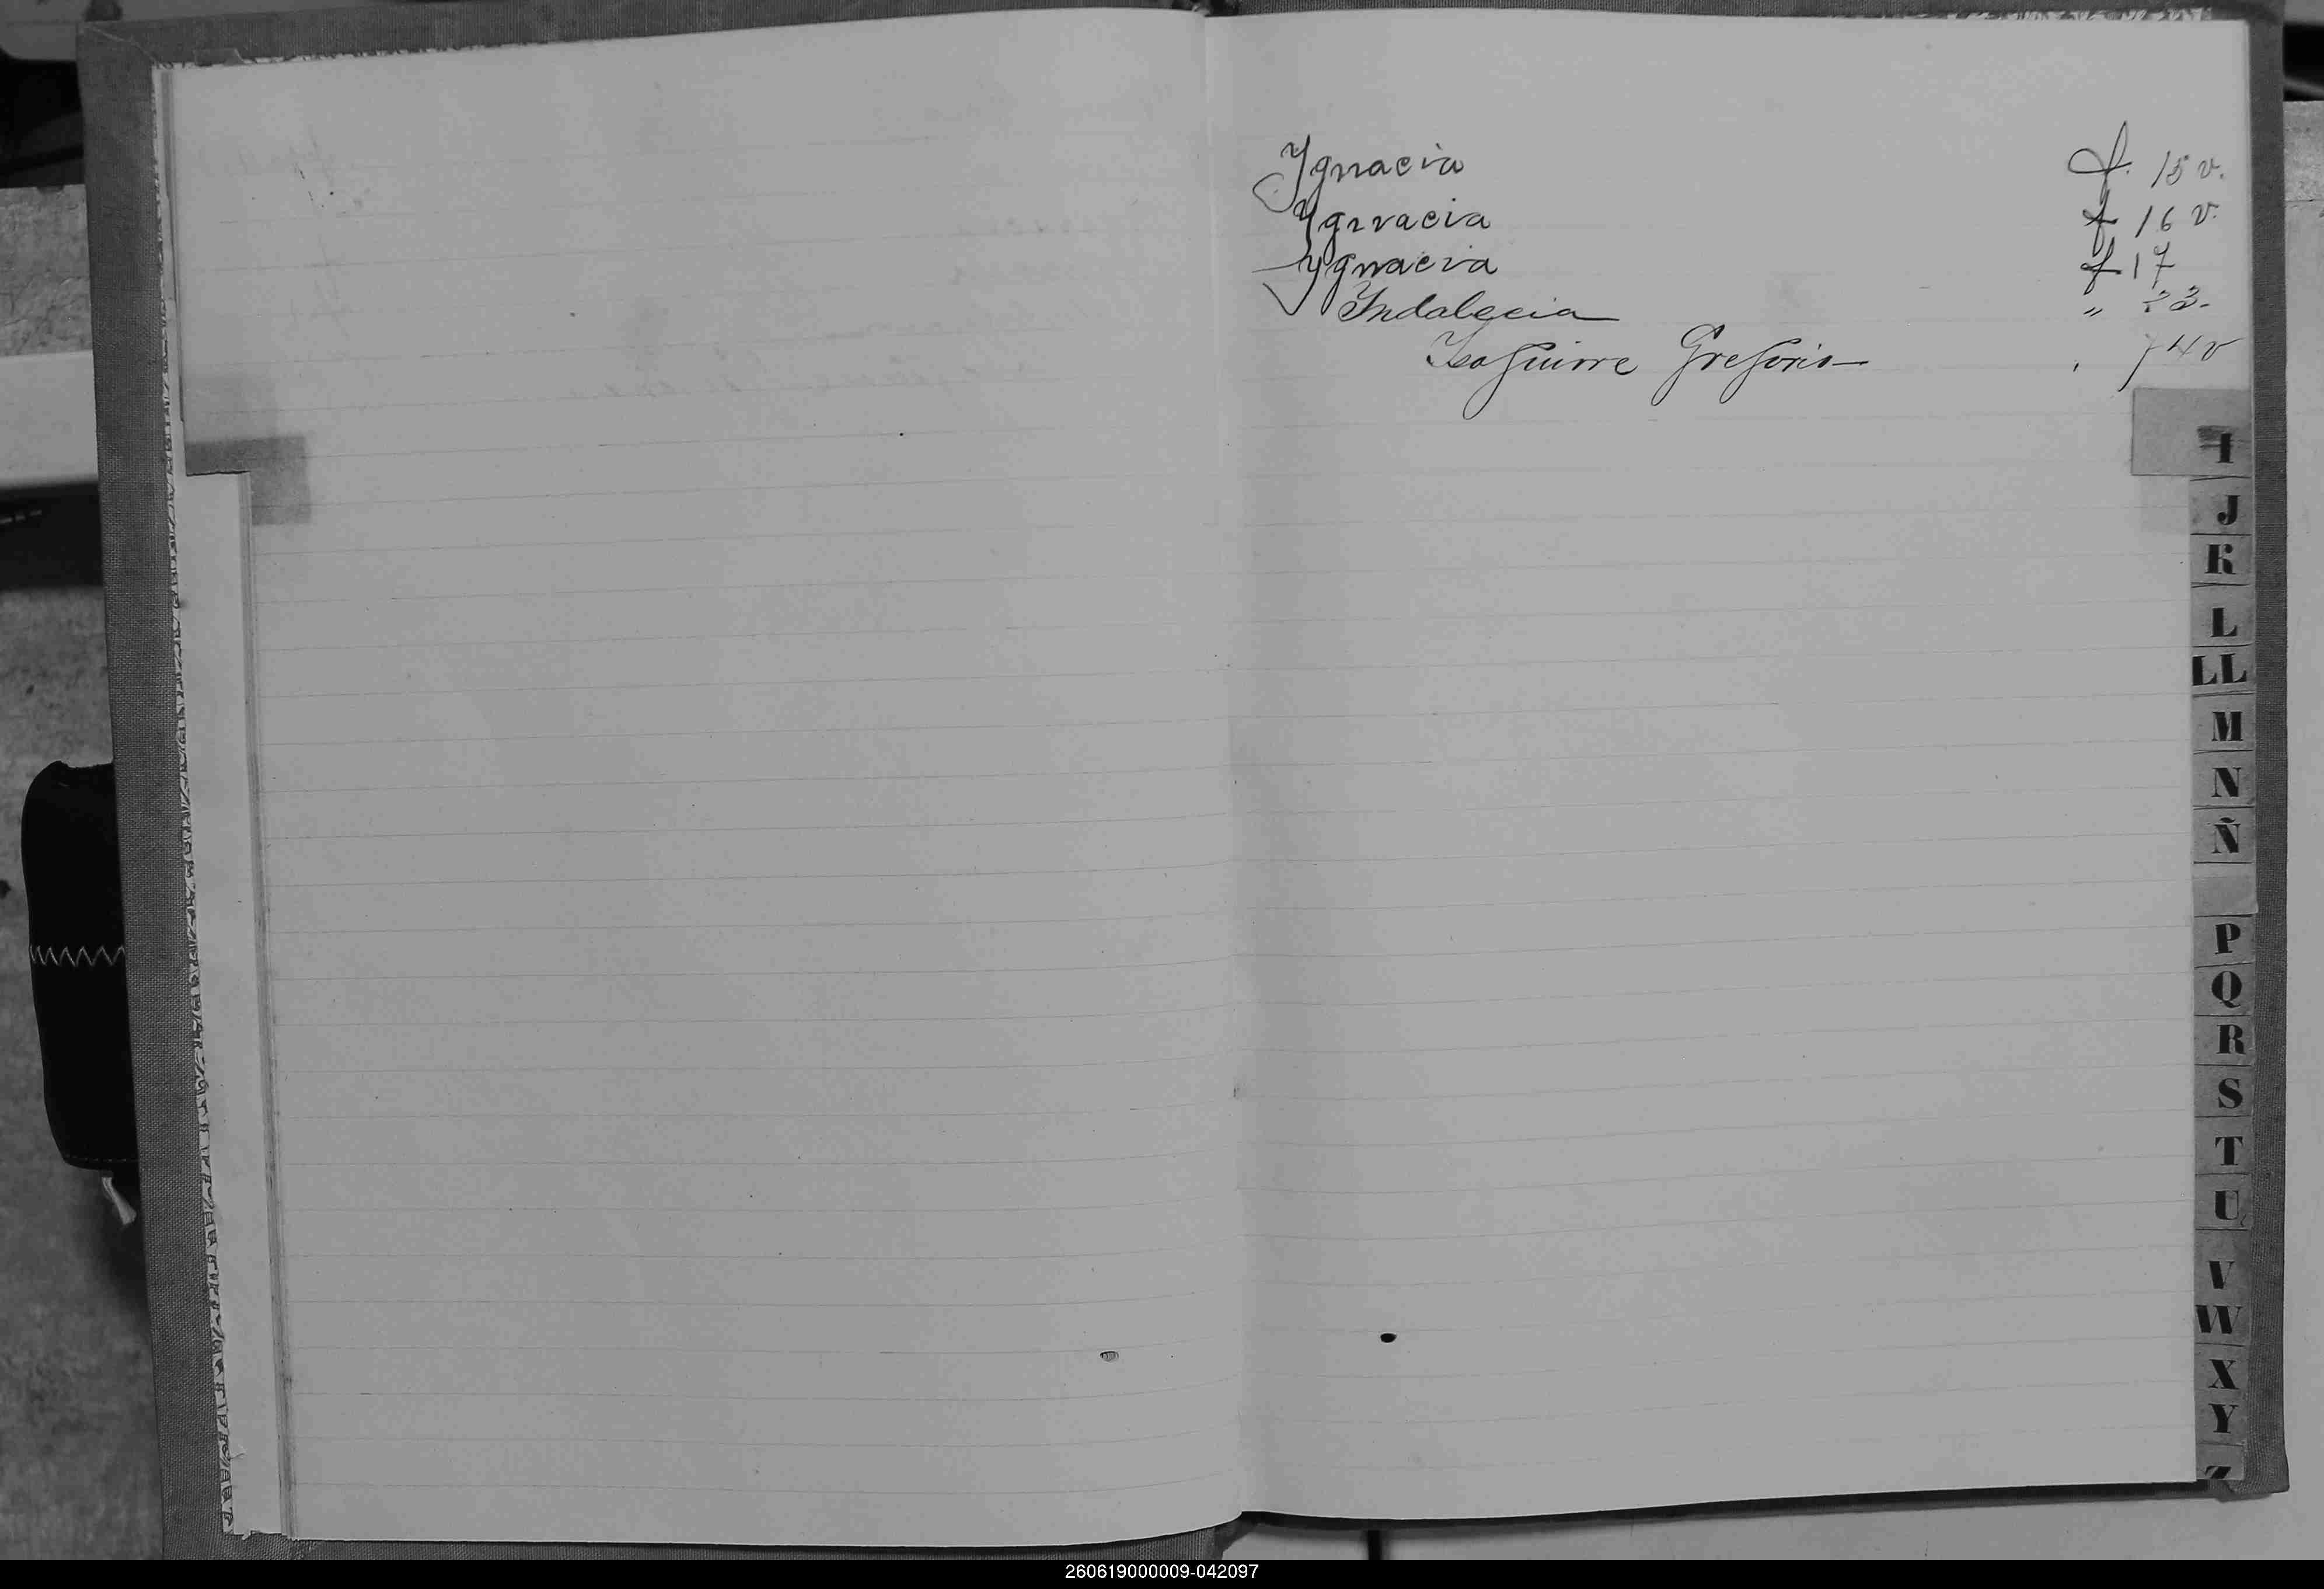 Ygnacia f. 15 v.
Ygnacia f 16 v.
Ygnacia f. 17
Indalecia " 23.
Isaguirre Gregorio 74v
I
J
K
L
LL
M
N
Ñ
P
Q
R
S
T
U
V
W
X
Y
Z
260619000009-042097